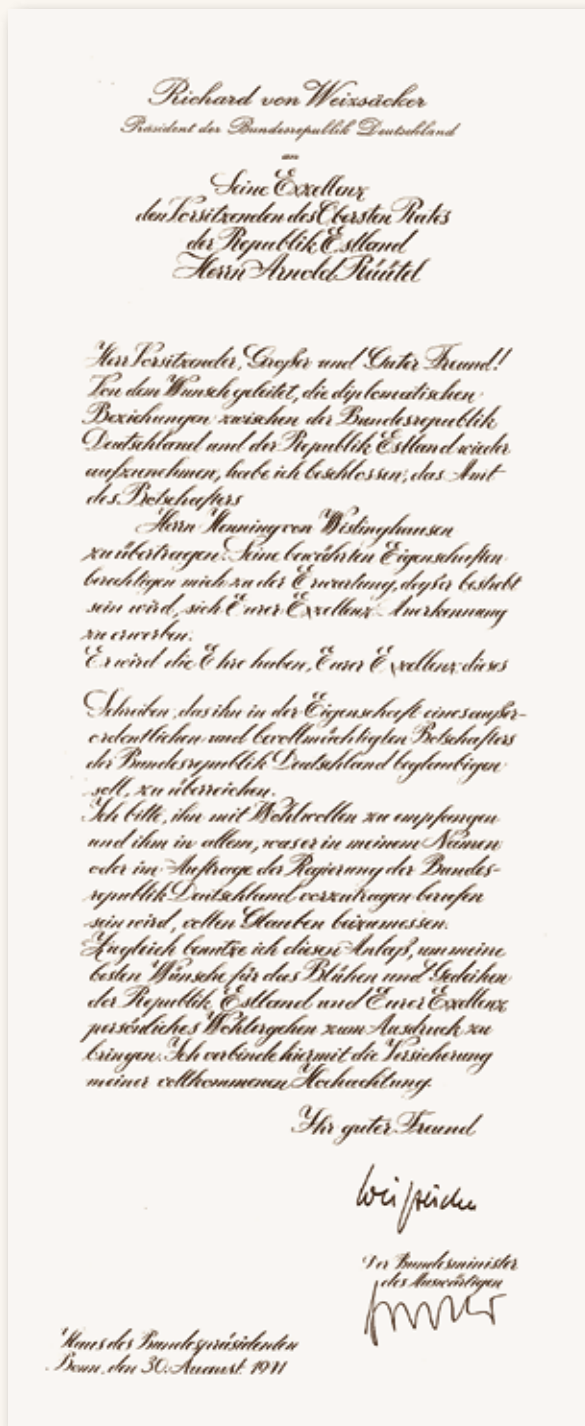 Richard von Weizsäcker
Präsident der Bundesrepublik Deutschland
an
Seine Exzellenz
den Vorsitzenden des Obersten Rates
der Republik Estland
Herrn Arnold Rüütel
Herr Vorsitzender, Großer und Guter Freund!
Von dem Wunsch geleitet, die diplomatischen
Beziehungen zwischen der Bundesrepublik
Deutschland und der Republik Estland wieder
aufzunehmen, habe ich beschlossen, das Amt
des Botschafters
Herrn Henning von Wistinghausen
zu übertragen. Seine bewährten Eigenschaften
berechtigen mich zu der Erwartung, daß er bestrebt
sein wird, sich Eurer Exzellenz Anerkennung
zu erwerben.
Er wird die Ehre haben, Eurer Exzellenz dieses
Schreiben, das ihn in der Eigenschaft eines außer-
ordentlichen und bevollmächtigten Botschafters
der Bundesrepublik Deutschland beglaubigen
soll, zu überreichen.
Ich bitte, ihn mit Wohlwollen zu empfangen
und ihm in allem, was er in meinem Namen
oder im Auftrage der Regierung der Bundes-
republik Deutschland vorzutragen berufen
sein wird, vollen Glauben beizumessen.
Zugleich benutze ich diesen Anlaß, um meine
besten Wünsche für das Blühen und Gedeihen
der Republik Estland und Eurer Exzellenz
persönliches Wohlergehen zum Ausdruck zu
bringen. Ich verbinde hiermit die Versicherung
meiner vollkommenen Hochachtung.
Ihr guter Freund
Weizsäcker
Der Bundesminister
des Auswärtigen
Haus des Bundespräsidenten
Bonn, den 30. August 1991